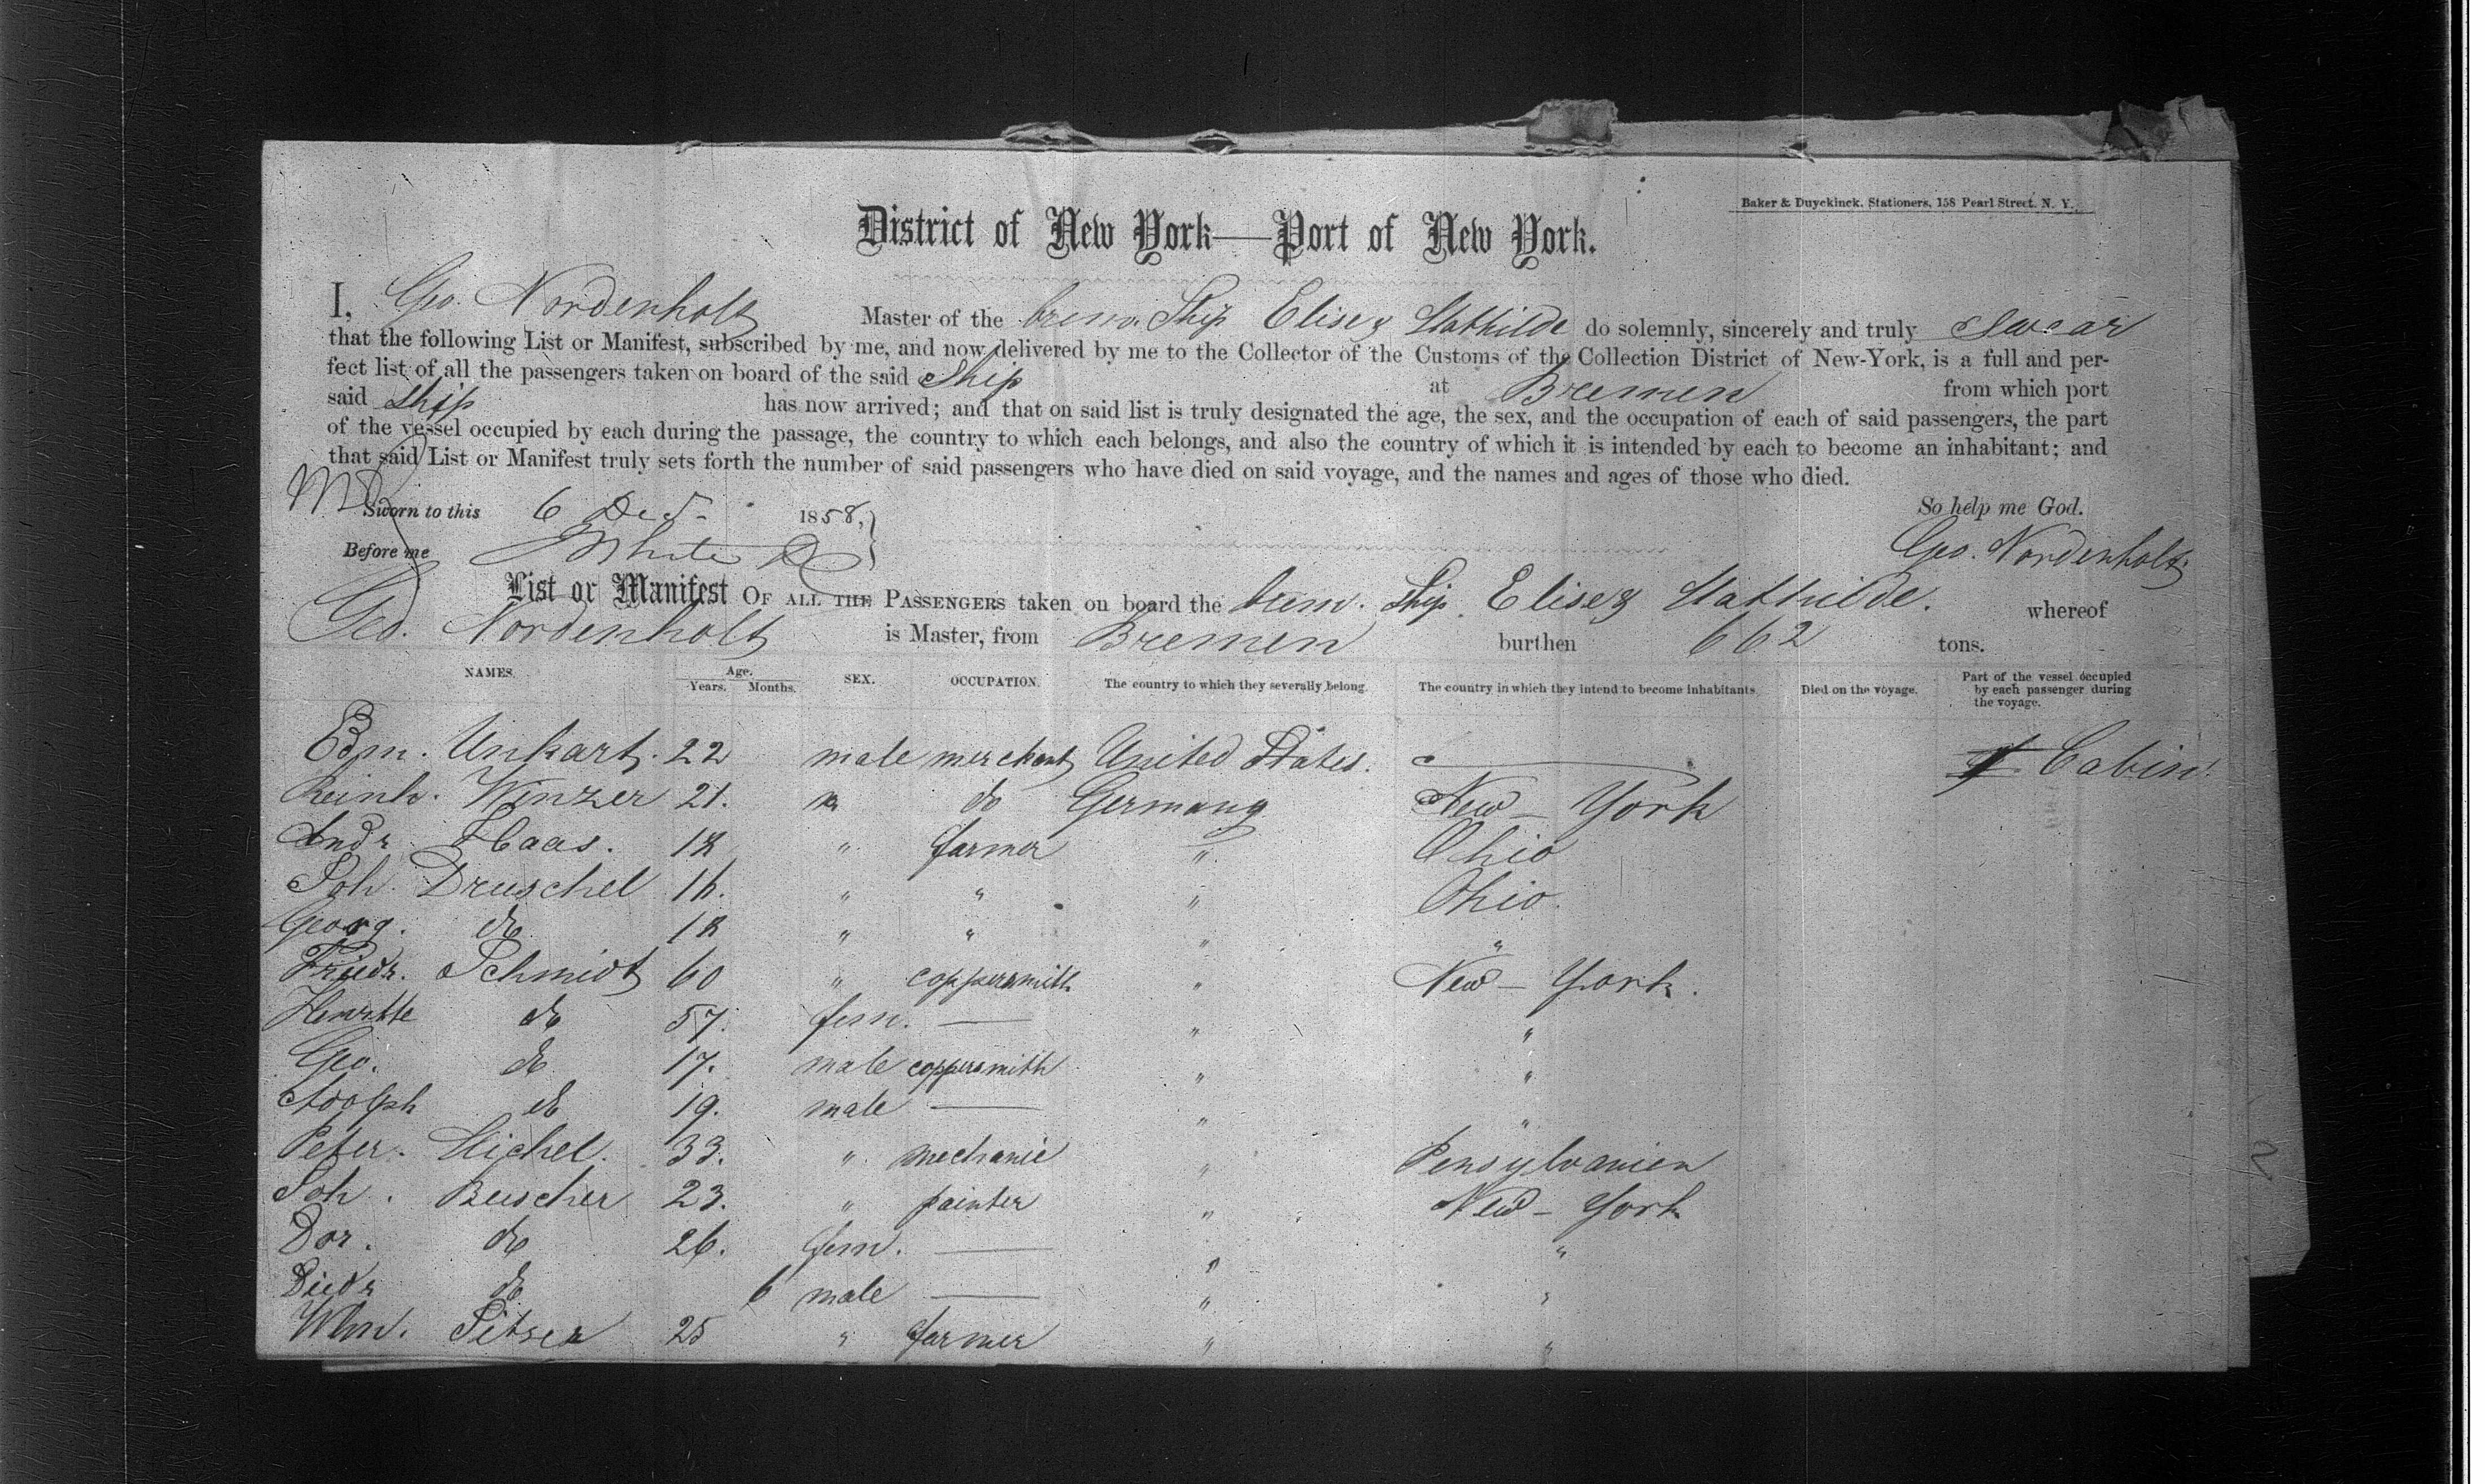 Baker & Duyckinck, Stationers, 158 Pearl Street, N. Y.
District of New York—Port of New York.
I, Geo. Nordenholt Master of the brem. Ship Elise & Mathilde do solemnly, sincerely and truly swear
that the following List or Manifest, subscribed by me, and now delivered by me to the Collector of the Customs of the Collection District of New-York, is a full and per-
fect list of all the passengers taken on board of the said Ship at Bremen from which port
said Ship has now arrived; and that on said list is truly designated the age, the sex, and the occupation of each of said passengers, the part
of the vessel occupied by each during the passage, the country to which each belongs, and also the country of which it is intended by each to become an inhabitant; and
that said List or Manifest truly sets forth the number of said passengers who have died on said voyage, and the names and ages of those who died.
Sworn to this 6 Dec 1858, So help me God.
Before me White Geo. Nordenholt
List or Manifest OF ALL THE PASSENGERS taken on board the brem. Ship Elise & Mathilde. whereof
Geo. Nordenholt is Master, from Bremen burthen 662 tons.
NAMES. Age. Years. Months. SEX. OCCUPATION. The country to which they severally belong. The country in which they intend to become inhabitants. Died on the voyage. Part of the vessel occupied by each passenger during the voyage.
Edm. Unkart. 22 male merchant United States. Cabin.
Reinh. Winzer 21. " do Germany New-York
Andr Haas. 18 " farmer " Ohio
Joh. Druschel 16. " " " Ohio.
Georg. do 18 " " " "
Friedr. Schmidt 60 " coppersmith " New-York.
Henrtte do 57. fem. — " "
Geo. do 17. male coppersmith " "
Adolph do 19. male — " "
Peter. Michel. 33. " mechanic " Pensylvanien
Joh. Buscher 23. " painter " New-York
Dor. do 26. fem. — " "
Diedr do 6 male — " "
Whn. Pitser 25 " farmer " "